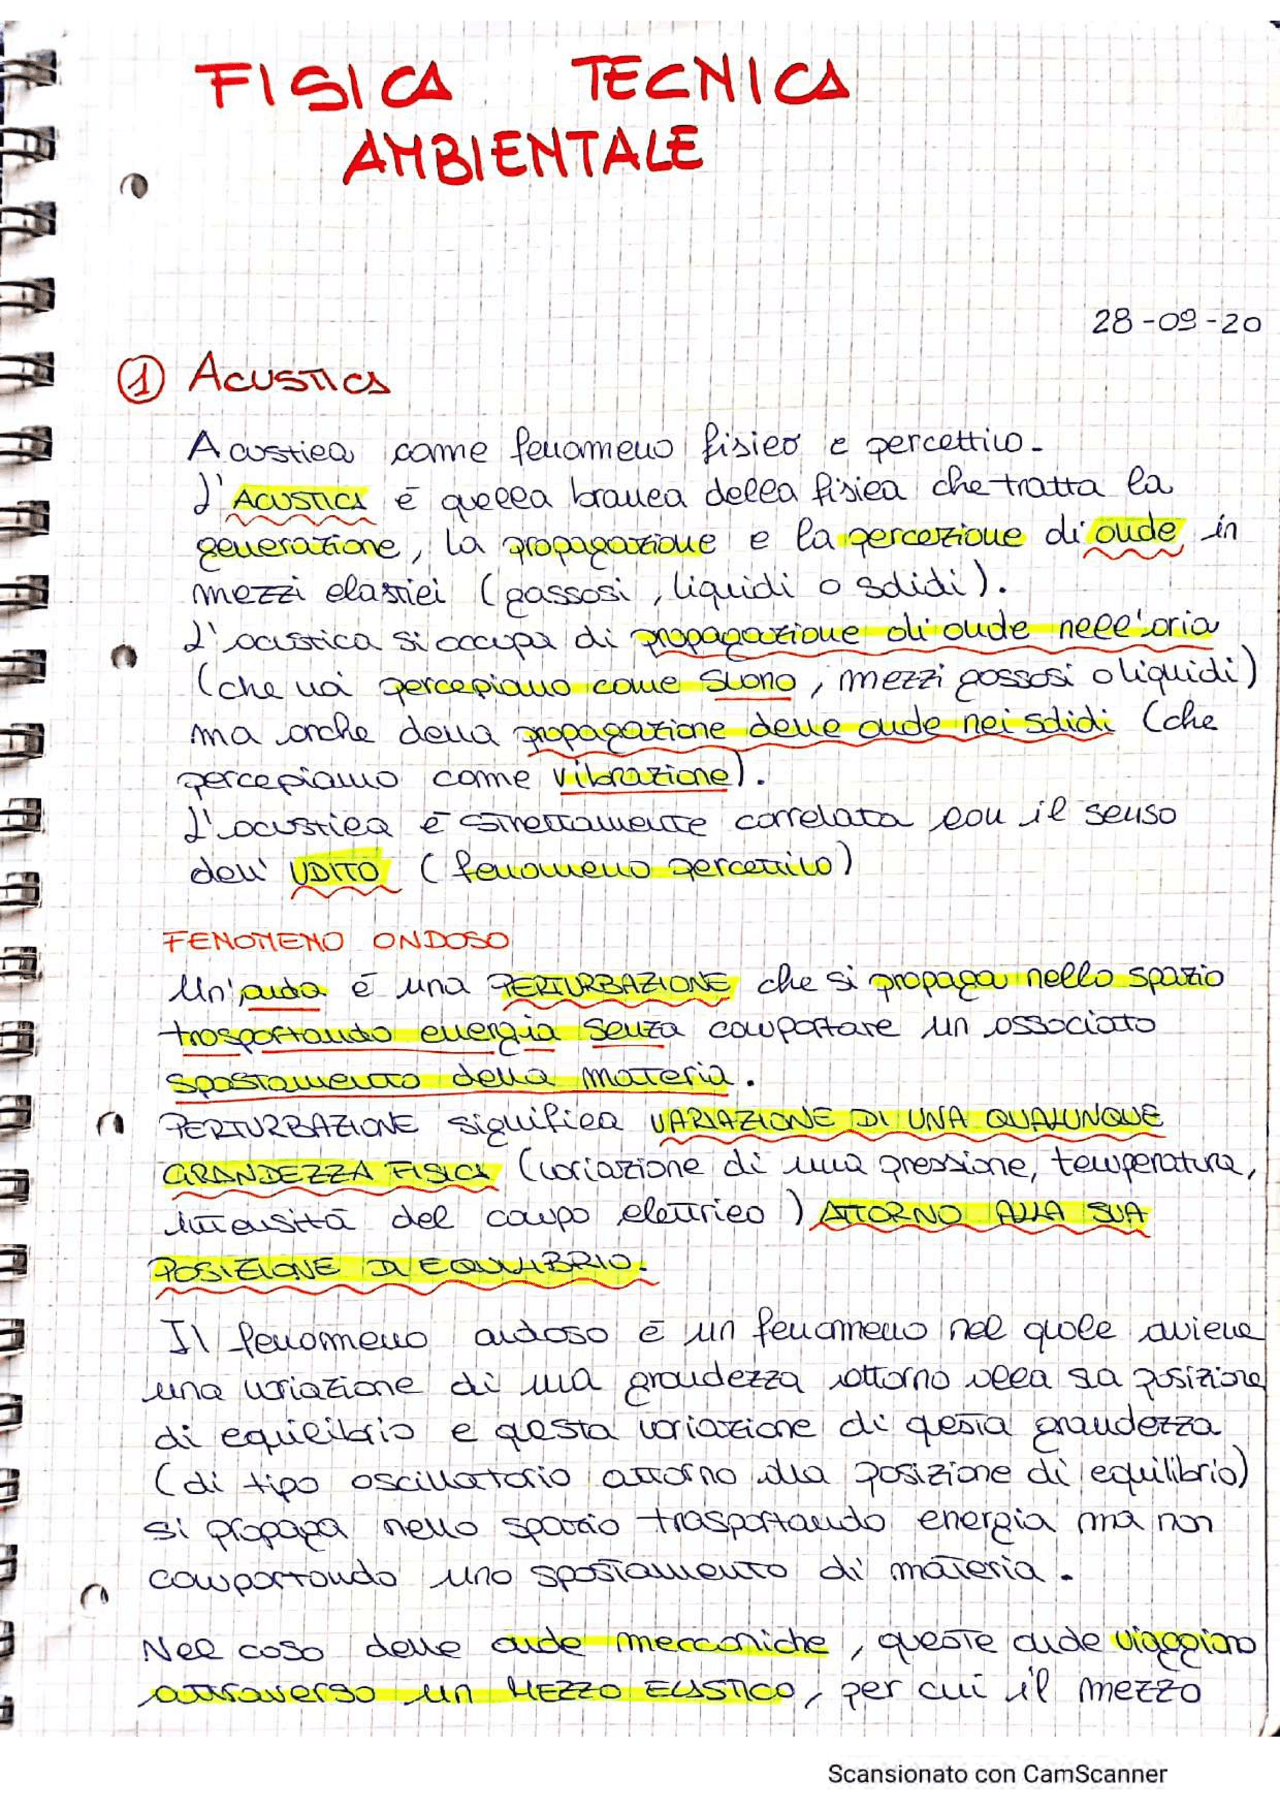 FISICA TECNICA
AMBIENTALE
28-09-20
1 ACUSTICA
Acustica come fenomeno fisico e percettivo.
L'ACUSTICA è quella branca della fisica che tratta la
generazione, la propagazione e la percezione di onde in
mezzi elastici (gassosi, liquidi o solidi).
L'acustica si occupa di propagazione di onde nell'aria
(che noi percepiamo come suono, mezzi gassosi o liquidi)
ma anche della propagazione delle onde nei solidi (che
percepiamo come vibrazione).
L'acustica è strettamente correlata con il senso
dell'UDITO (fenomeno percettivo)
FENOMENO ONDOSO
Un'onda è una PERTURBAZIONE che si propaga nello spazio
trasportando energia senza comportare un associato
spostamento della materia.
PERTURBAZIONE significa VARIAZIONE DI UNA QUALUNQUE
GRANDEZZA FISICA (variazione di una pressione, temperatura,
intensità del campo elettrico) ATTORNO ALLA SUA
POSIZIONE DI EQUILIBRIO.
Il fenomeno ondoso è un fenomeno nel quale aviene
una variazione di una grandezza attorno alla sua posizione
di equilibrio e questa variazione di questa grandezza
(di tipo oscillatorio attorno alla posizione di equilibrio)
si propaga nello spazio trasportando energia ma non
comportando uno spostamento di materia.
Nel caso delle onde meccaniche, queste onde viaggiano
attraverso un MEZZO ELASTICO, per cui il mezzo
Scansionato con CamScanner